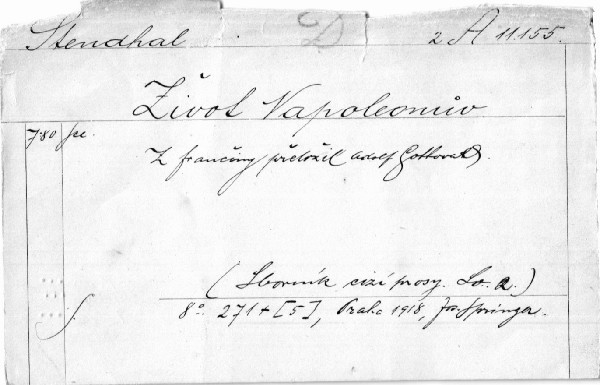 Stendhal D 2 A 11.155.
Život Napoleonův
7·80 fce.
Z frančiny přeložil Adolf Gottwald.
(Sborník cizí prosy. Sv. 2.)
8º 271 + [5], Praha 1918, Jos. Springer.